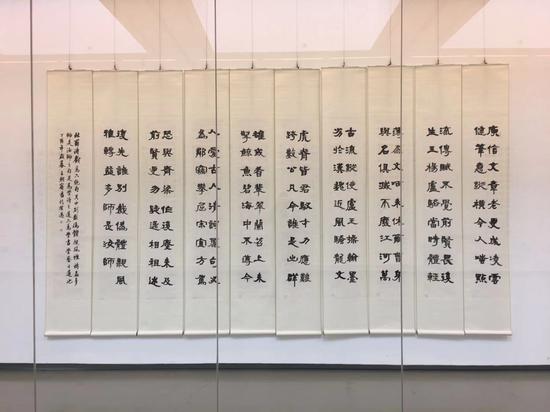 庾信文章老更成凌雲
健筆意縱橫今人嗤點
流傳賦不覺前賢畏後
生王楊盧駱當時體輕
薄為文哂未休爾曹身
與名俱滅不廢江河萬
古流縱使盧王操翰墨
劣於漢魏近風騷龍文
虎脊皆君馭才力應難
跨數公凡今誰是出群
雄或看翡翠蘭苕上未
掣鯨魚碧海中不薄今
人愛古人清詞麗句必
為鄰竊攀屈宋宜方駕
恐與齊梁作後塵未及
前賢更勿疑遞相祖述
復先誰別裁偽體親風
雅轉益多師是汝師
杜甫詩戲為六絕句